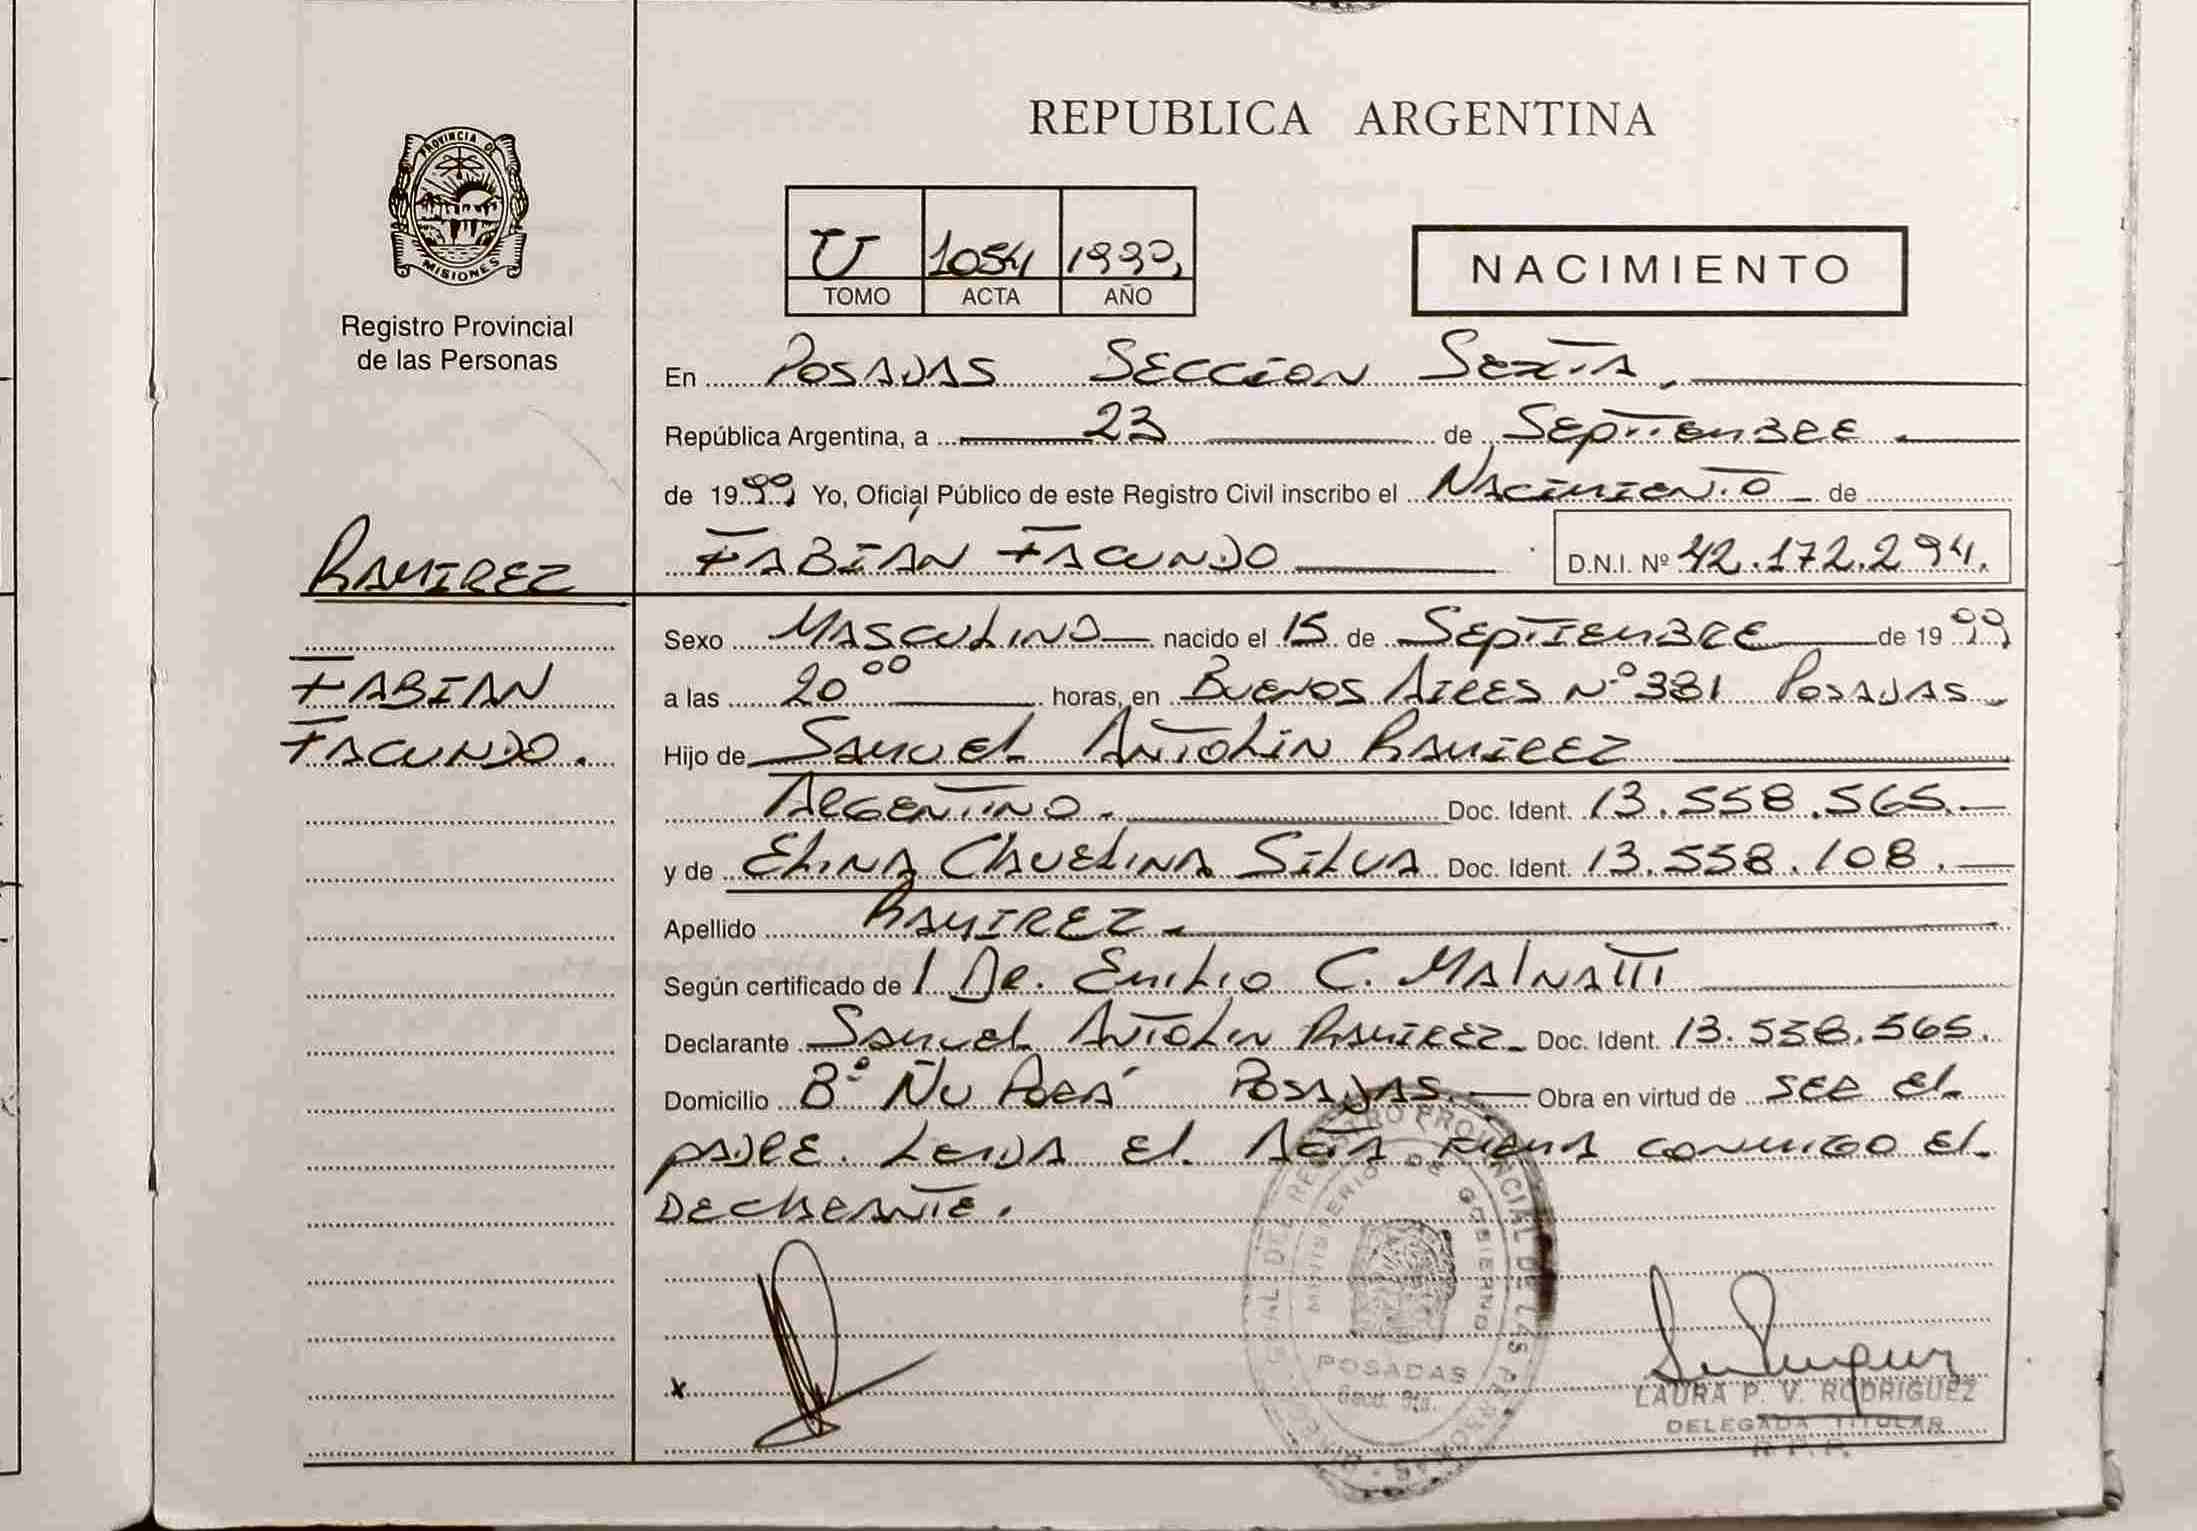 PROVINCIA DE
MISIONES
Registro Provincial
de las Personas
RAMIREZ
FABIAN
FACUNDO.
REPUBLICA ARGENTINA
U 1054 1999
TOMO ACTA AÑO
NACIMIENTO
En POSADAS SECCION SEXTA.
República Argentina, a 23 de SEPTIEMBRE.
de 1999 Yo, Oficial Público de este Registro Civil inscribo el NACIMIENTO de
FABIÁN FACUNDO D.N.I. Nº 42.172.294.
Sexo MASCULINO nacido el 15 de SEPTIEMBRE de 1999
a las 20 00 horas, en BUENOS AIRES Nº 381 POSADAS
Hijo de SAMUEL ANTOLIN RAMIREZ
ARGENTINO. Doc. Ident. 13.558.565.
y de ELINA CAVELINA SILVA Doc. Ident. 13.558.108.
Apellido RAMIREZ.
Según certificado de DR. EMILIO C. MALNATTI
Declarante SAMUEL ANTOLIN RAMIREZ Doc. Ident. 13.558.565.
Domicilio Bº ÑU PORÁ POSADAS. Obra en virtud de SER EL
PADRE. LEIDA EL ACTA FIRMA CONMIGO EL
DECLARANTE.
REGISTRO PROVINCIAL DE LAS PERSONAS
MINISTERIO DE GOBIERNO
POSADAS
x
LAURA P. V. RODRIGUEZ
DELEGADA TITULAR
R.P.P.